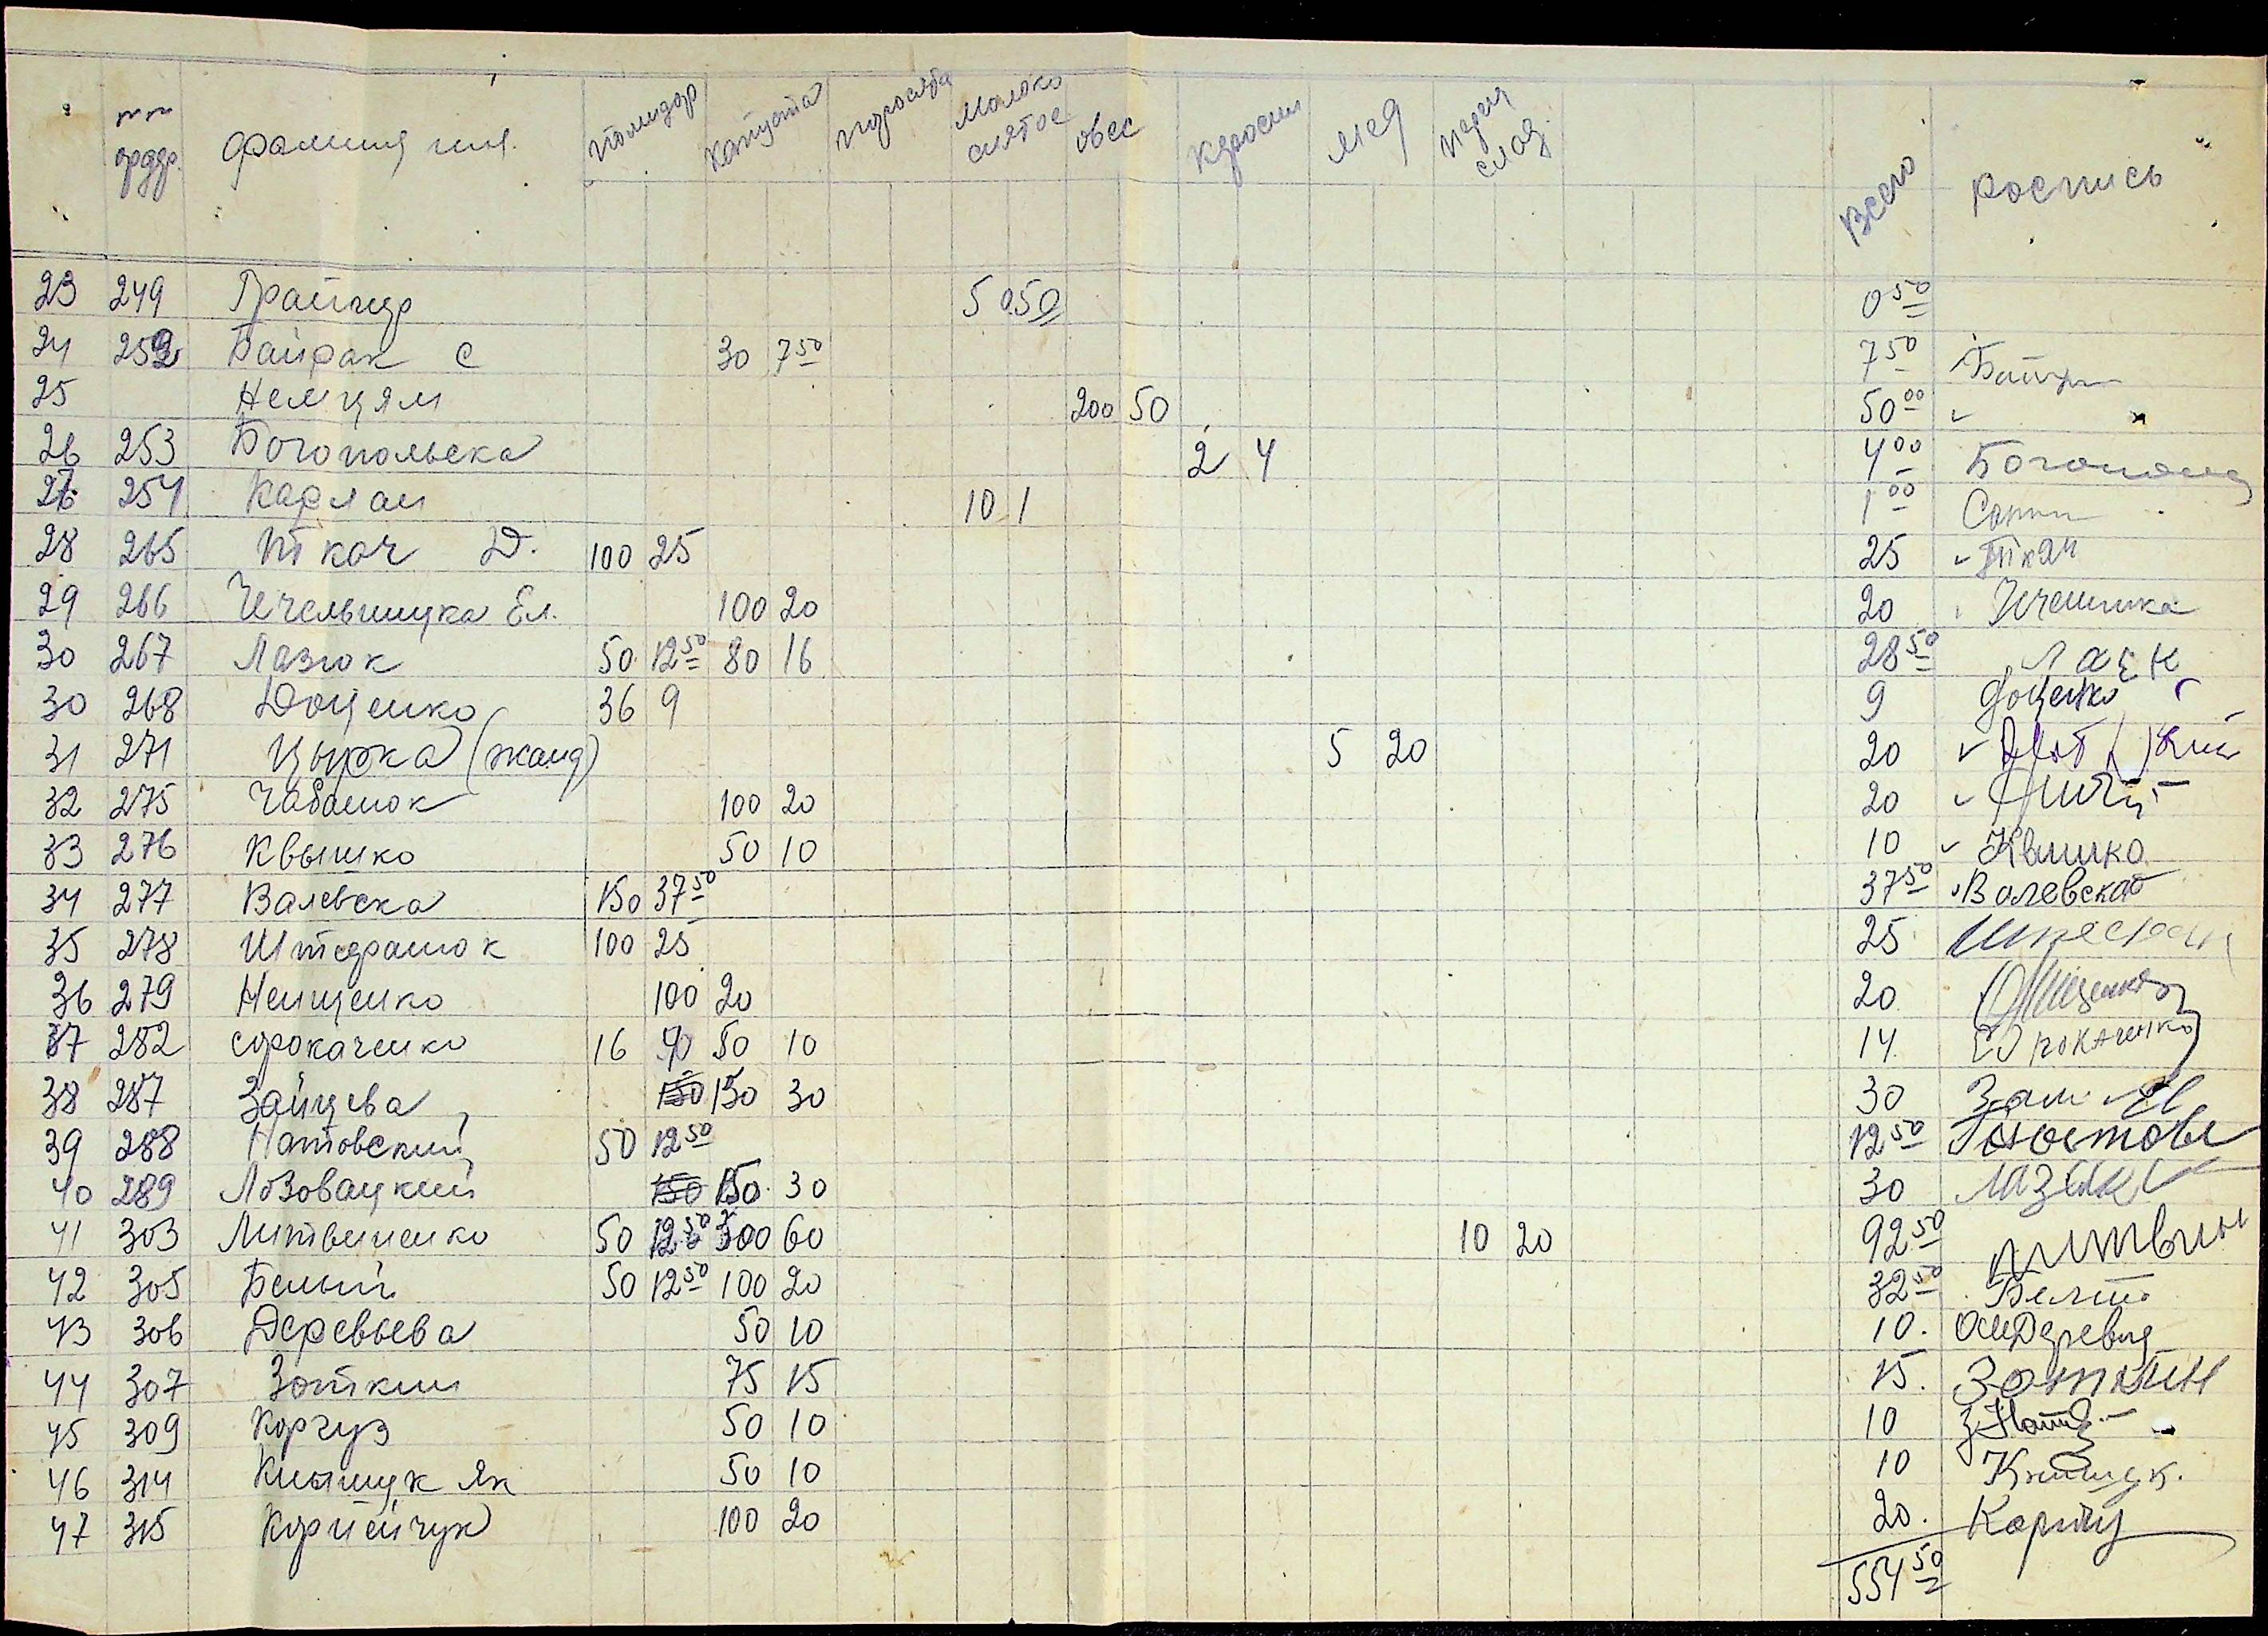 №№ ордер. Фамилия имя. помидор капуста поросята молоко снятое овес керосин мед перец слад. Всего роспись
23 249 Грайнер 5 0.50 0 50
24 252 Байрак С 30 7 50 7 50
25 Немцям 200 50 50 00
26 253 Богопольска 2 4 4 00
27 254 Карлаш 10 1 1 00
28 265 Ткач Д. 100 25 25 Ткач
29 266 Чечельницка Ел. 100 20 20
30 267 Лазюк 50 12 50 80 16 28 50
30 268 Доценко 36 9 9 Доценко
31 271 Цырка (жанд) 5 20 20
32 275 Чабанюк 100 20 20
33 276 Квышко 50 10 10 Квишко
34 277 Валевска 150 37 50 37 50 Валевская
35 278 Штефанюк 100 25 25
36 279 Ненщенко 100 20 20
37 282 Сорокаченко 16 4 50 10 14
38 287 Зайцева 150 30 30
39 288 Натовский 50 12 50 12 50
40 289 Лозовацкий 150 30 30
41 303 Литвиненко 50 12 50 300 60 10 20 92 50
42 305 Белый 50 12 50 100 20 32 50
43 306 Деревьева 50 10 10.
44 307 Зоткин 75 15 15. Зоткин
45 309 Корчуз 50 10 10
46 314 Книщук Як 50 10 10 Книщук.
47 315 Корнейчук 100 20 20.
554 50